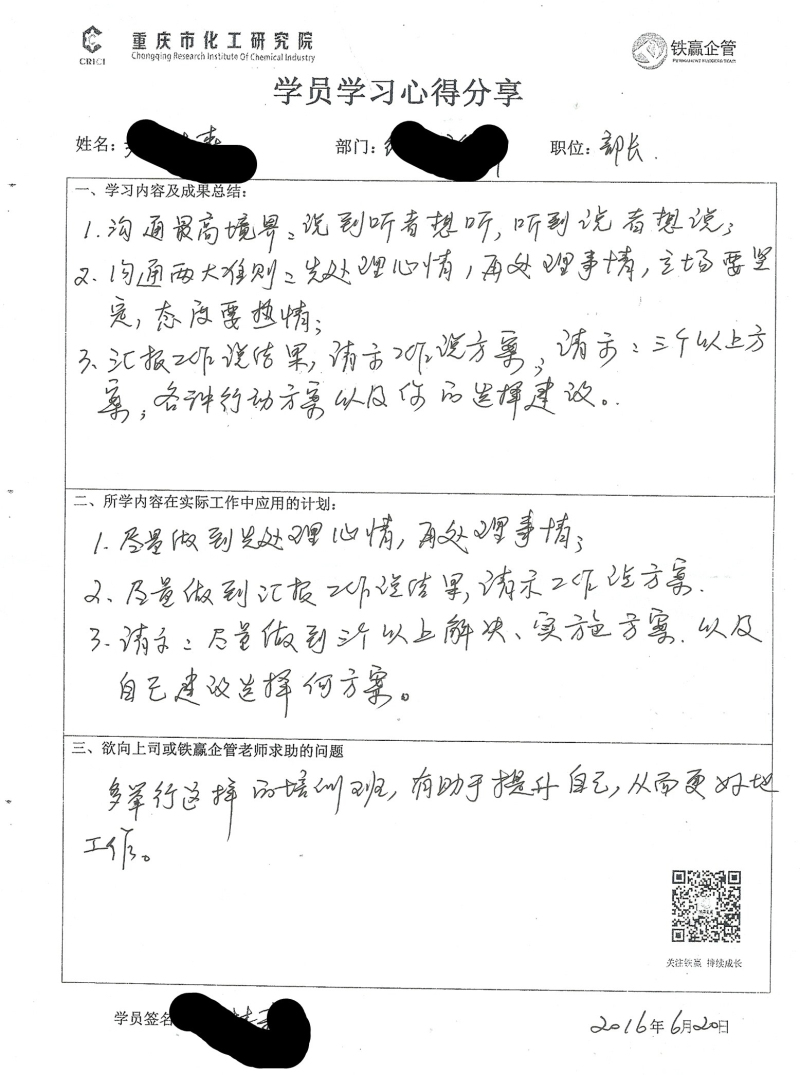 CRICI
重庆市化工研究院
Chongqing Research Institute Of Chemical Industry
铁赢企管
学员学习心得分享
姓名:
部门:
职位: 部长.
一、学习内容及成果总结:
1.沟通最高境界:说到听者想听,听到说者想说;
2.沟通两大准则:先处理心情,再处理事情,立场要坚
定,态度要热情;
3.汇报工作说结果,请示工作说方案;请示:三个以上方
案,各种行动方案以及你的选择建议。
二、所学内容在实际工作中应用的计划:
1.尽量做到先处理心情,再处理事情;
2.尽量做到汇报工作说结果,请示工作说方案.
3.请示:尽量做到三个以上解决、实施方案.以及
自己建议选择何方案。
三、欲向上司或铁赢企管老师求助的问题
多举行这样的培训班,有助于提升自己,从而更好地
工作。
关注铁赢 持续成长
学员签名
2016年6月20日